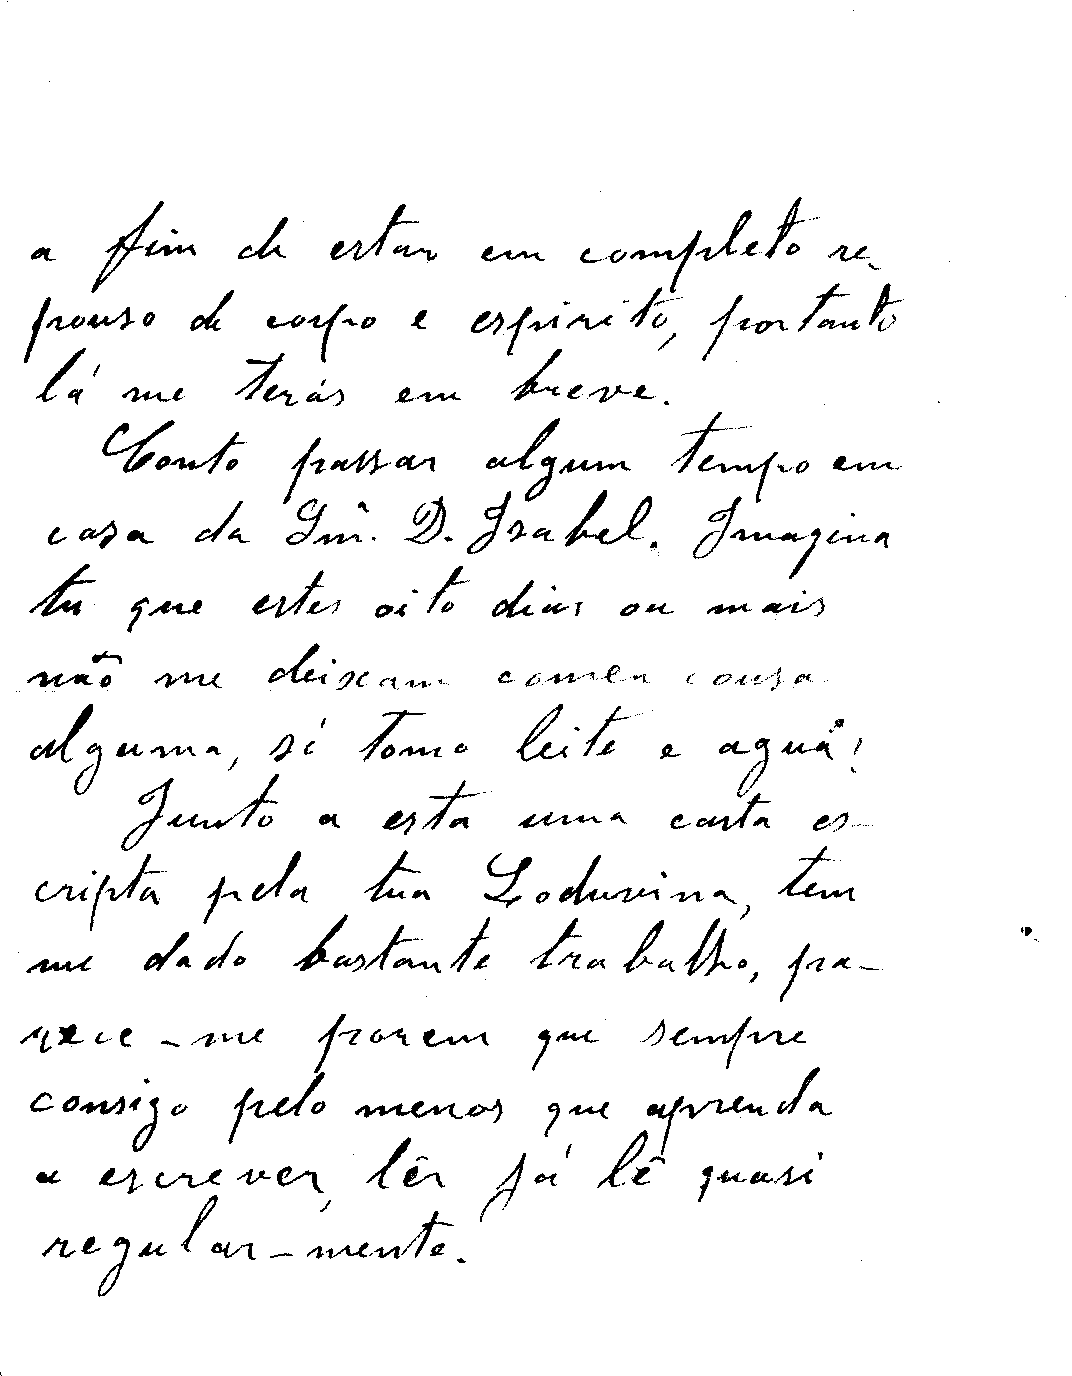 a fim de estar em completo re-
pouso de corpo e espirito, portanto
lá me terás em breve.
Conto passar algum tempo em
casa da Snr̂. D. Isabel. Imagina
tu que estes oito dias ou mais
não me deixam comer cousa
alguma, só tomo leite e agua!
Junto a esta uma carta es-
cripta pela tua Loduvina, tem
me dado bastante trabalho, pa-
rece-me porem que sempre
consigo pelo menos que aprenda
a escrever, lêr já lê quasi
regular-mente.